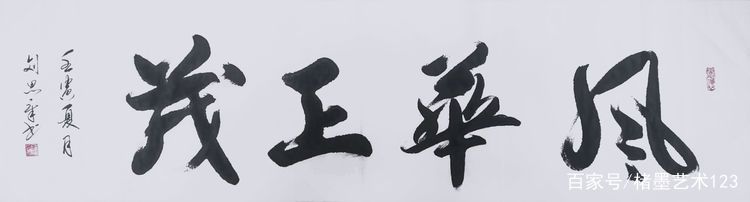 风華正茂
壬寅夏月
刘思书
百家号/楮墨艺术123